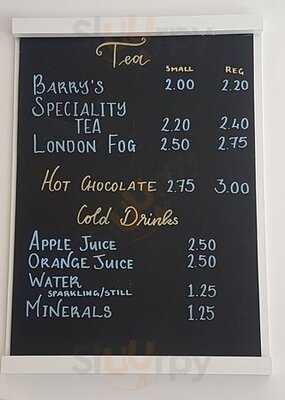 Tea
SMALL REG
BARRY'S 2.00 2.20
SPECIALITY
TEA 2.20 2.40
LONDON FOG 2.50 2.75
HOT CHOCOLATE 2.75 3.00
Cold Drinks
APPLE JUICE 2.50
ORANGE JUICE 2.50
WATER
SPARKLING/STILL 1.25
MINERALS 1.25